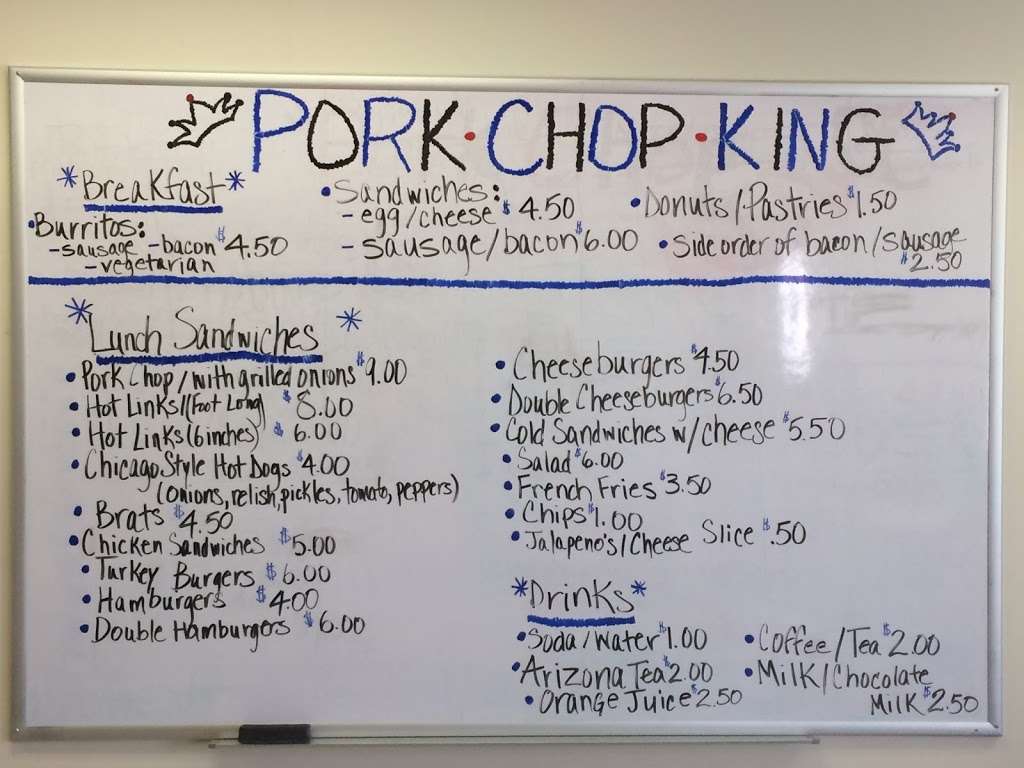 PORK·CHOP·KING
*Breakfast*
•Burritos:
-sausage -bacon $4.50
-vegetarian
•Sandwiches:
-egg/cheese $4.50
-sausage/bacon $6.00
•Donuts/Pastries $1.50
•Side order of bacon/sausage
$2.50
*Lunch Sandwiches*
•Pork Chop/with grilled onions $9.00
•Hot Links/(Foot Long) $8.00
•Hot Links (6 inches) $6.00
•Chicago Style Hot Dogs $4.00
(onions, relish, pickles, tomato, peppers)
•Brats $4.50
•Chicken Sandwiches $5.00
•Turkey Burgers $6.00
•Hamburgers $4.00
•Double Hamburgers $6.00
•Cheeseburgers $4.50
•Double Cheeseburgers $6.50
•Cold Sandwiches w/cheese $5.50
•Salad $6.00
•French Fries $3.50
•Chips $1.00
•Jalapeno's/Cheese Slice $.50
*Drinks*
•Soda/Water $1.00
•Arizona Tea $2.00
•Orange Juice $2.50
•Coffee/Tea $2.00
•Milk/Chocolate
Milk $2.50